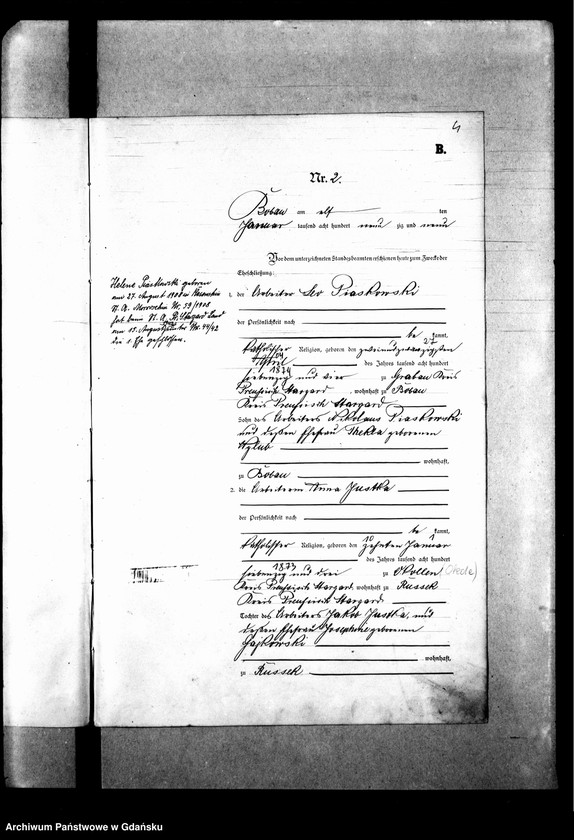 4
B.
Nr. 2.
Bobau am elf ten
Januar tausend acht hundert neun zig und neun
Vor dem unterzeichneten Standesbeamten erschienen heute zum Zwecke der
Eheschließung:
1. der Arbeiter Leo Piaskowski
der Persönlichkeit nach
be kannt,
katholischer Religion, geboren den
27
April 04 des Jahres tausend acht hundert
1874
siebenzig und vier zu Grabau Kreis
Preußisch Stargard, wohnhaft zu Bobau
Kreis Preußisch Stargard
Sohn des Arbeiters Nikolaus Piaskowski
und dessen Ehefrau Thekla geborenen
wohnhaft,
zu Bobau
2. die Arbeiterin Anna Justka
der Persönlichkeit nach
be kannt,
10 1
katholischer Religion, geboren den zehnten Januar
des Jahres tausend acht hundert
1873
siebenzig und drei zu Okollen (Okole)
Kreis Preußisch Stargard, wohnhaft zu Russek
Kreis Preußisch Stargard
Tochter des Arbeiters Jakob Justka, und
dessen Ehefrau Josephine geborenen
wohnhaft,
zu Russek
Helene Piaskowski geboren
am 27. August 1908 in
hat beim St. A. Pr. Stargard Land
am 15. August Nr. 44/42
die 1. Ehe geschlossen.
Archiwum Państwowe w Gdańsku